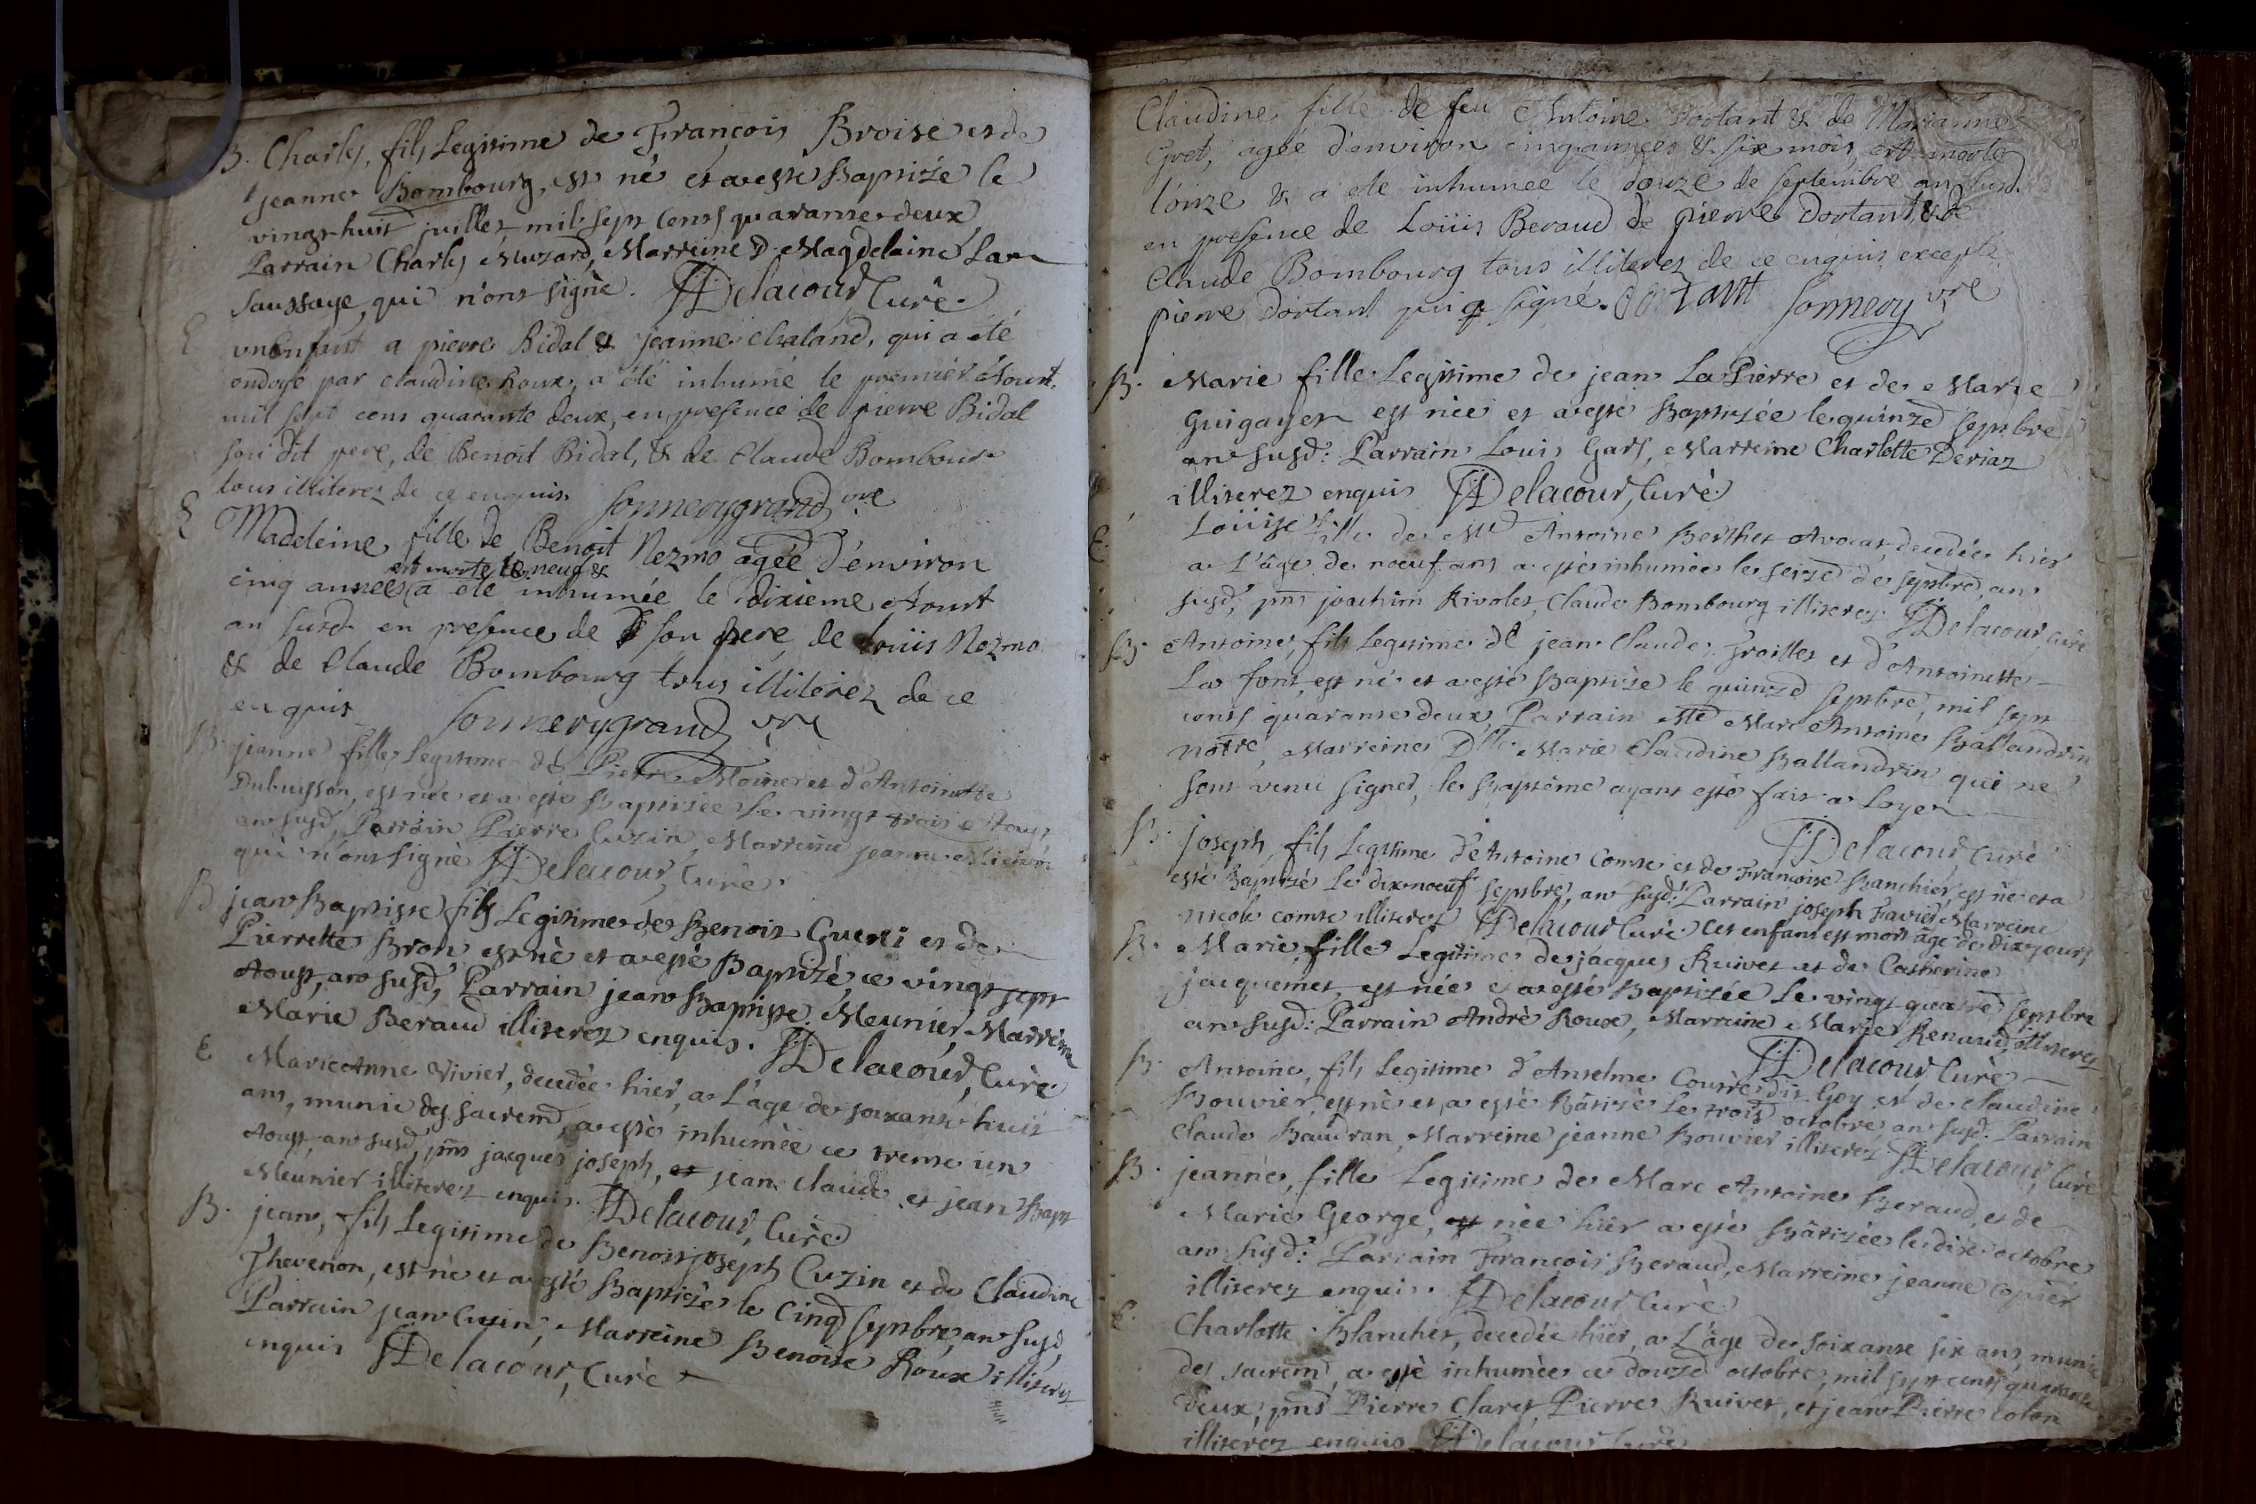 B. Charles, fils Legitime de François Broise et de
jeanne Bombourg, est né et a esté Baptizé le
vingt-huit juillet mil sept Cents quarante deux
Parrain Charles Muzard, Marreine D. Magdelaine La
Saussaye, qui n'ont signè. Delacour Curè.
E un Enfant a pierre Bidal & jeanne chaland, qui a été
ondoyé par claudine Roux, a été inhumé le premier Aoust
mil sept cens quarante deux, en presence de pierre Bidal
son dit pere, de Benoit Bidal, & de Claude Bombourg
tous illiterez de ce enquis. Sonnerygrand vre
E Madeleine fille de Benoit Nezmo agée d'environ
cinq années est morte le neuf & a été inhumée le dixieme Aoust
an susd. en presence de son pere, de Loüis Nezmo
& de Claude Bombourg tous illiterez de ce
enquis Sonnerygrand vre
B. jeanne fille Legitime de Pierre Moiner et d'Antoinette
Dubuisson, est née et a esté Baptizée Le vingt trois Aoust
an susd, Parrain Pierre Cuzin, Marreine jeanne
qui n'ont signè Delacour, Curè.
B jean Baptiste fils Legitime de Benoit Guerri et de
Pierrette Bron est né et a esté Baptizé, ce vingt sept
Aoust, an susd, Parrain jean Baptiste Meunier, Marreine
Marie Beraud illiterez enquis. Delacour, Curè.
E Marie Anne Vivier, decedée hier, a L'âge de soixante huit
ans, munie des sacremd, a estè inhumèe ce trente un
Aoust, an susd, pnts jacques joseph, et jean Claude et jean Bapt
Meunier illiterez enquis. Delacour, Curè.
B. jean, fils Legitime de Benoit joseph Cuzin et de Claudine
Thevenon, est nè et a esté Baptizè le Cinq Septbre, an susd,
Parrain jean Cuzin, Marreine Benoise Roux illiterez
enquis Delacour, Curè
Claudine fille de feu Antoine Dortant & de Marianne
Gret, agée d'environ cinq années & six mois, est morte
l'onze & a été inhumée le douze de septembre an susd.
en presence de Loüis Beraud de pierre Dortant, & de
Claude Bombourg tous illiterez de ce enquis excepté
pierre Dortant qui a signé. Dortant Sonnery vre
B. Marie fille Legitime de jean La Pierre et de Marie
Guigayer est née et a esté Baptizée le quinze Septbre
an susd: Parrain Loui Gars, Marreine Charlotte Deriaz
illiterez enquis Delacour, Curè.
E. Loüise fille de Mre Antoine Berthet Avocat, decedée hier
a L'âge de noeuf ans a estè inhumèe le seize de Septbre, an
susd, pnts joachim Rivolet, Claude Bombourg illiterez. Delacour, Curè
B. Antoine, fils Legitime de jean Claude Froillet et d'Antoinette
La font, est né et a esté Baptizé le quinze Septbre, mil sept
cents quarante deux, Parrain Mre Marc Antoine Ballandrin
notre, Marreine Dlle Marie Claudine Ballandrin qui ne
sont venu signer, le Baptême ayant esté fait a Loyer
Delacour Curè
B. joseph, fils Legitime d'Antoine Comte et de Françoise Banchier, est né et a
esté Baptizé Le dix noeuf Septbre, an susd: Parrain joseph Favier Marreine
nicole comte illiterez Delacour Curè Cet enfant est mort âgé de dix jours
B. Marie, fille Legitime de jacques Ruivet et de Catherine
jacquemet, est née et a esté Baptizée Le vingt quatre Septbre
an susd: Parrain Andrè Roux, Marreine Marie Renaud, illiterez
Delacour Curè
B. Antoine, fils Legitime d'Anselme Courre dit Goy et de Claudine
Bouvier, est né et a esté Bâtizè Le trois octobre, an susd. Parrain
Claude Baudran, Marreine jeanne Bouvier illiterez Delacour, Curè
B. jeanne, fille Legitime de Marc Antoine Beraud, et de
Marie George, est née hier a estè Bâtizée le dix octobre
an susd: Parrain François Beraud, Marreine jeanne Copier
illiterez enquis. Delacour Curè
E. Charlotte Blanchet, decedée hier, a L'âge de soixante six ans, munie
des sacremd, a estè inhumèe ce douze octobre, mil sept cents quarante
deux, pnts Pierre Claret, Pierre Ruivet, et jean Pierre colon
illiterez enquis Delacour Curè